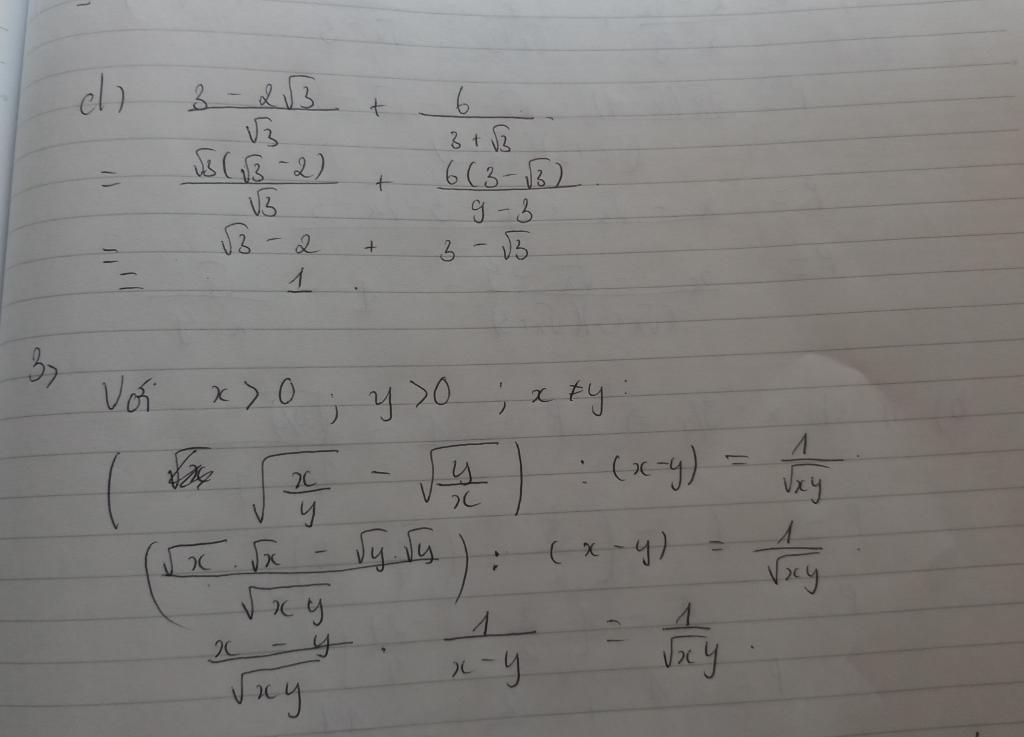 d) (3 - 2√3)/√3 + 6/(3 + √3)
= √3(√3 - 2)/√3 + 6(3 - √3)/(9 - 3)
= √3 - 2 + 3 - √3
= 1.
3, Với x > 0 ; y > 0 ; x ≠ y :
(√(x/y) - √(y/x)) : (x-y) = 1/√xy.
((√x . √x - √y . √y)/√xy) : (x - y) = 1/√xy.
(x - y)/√xy . 1/(x - y) = 1/√xy.